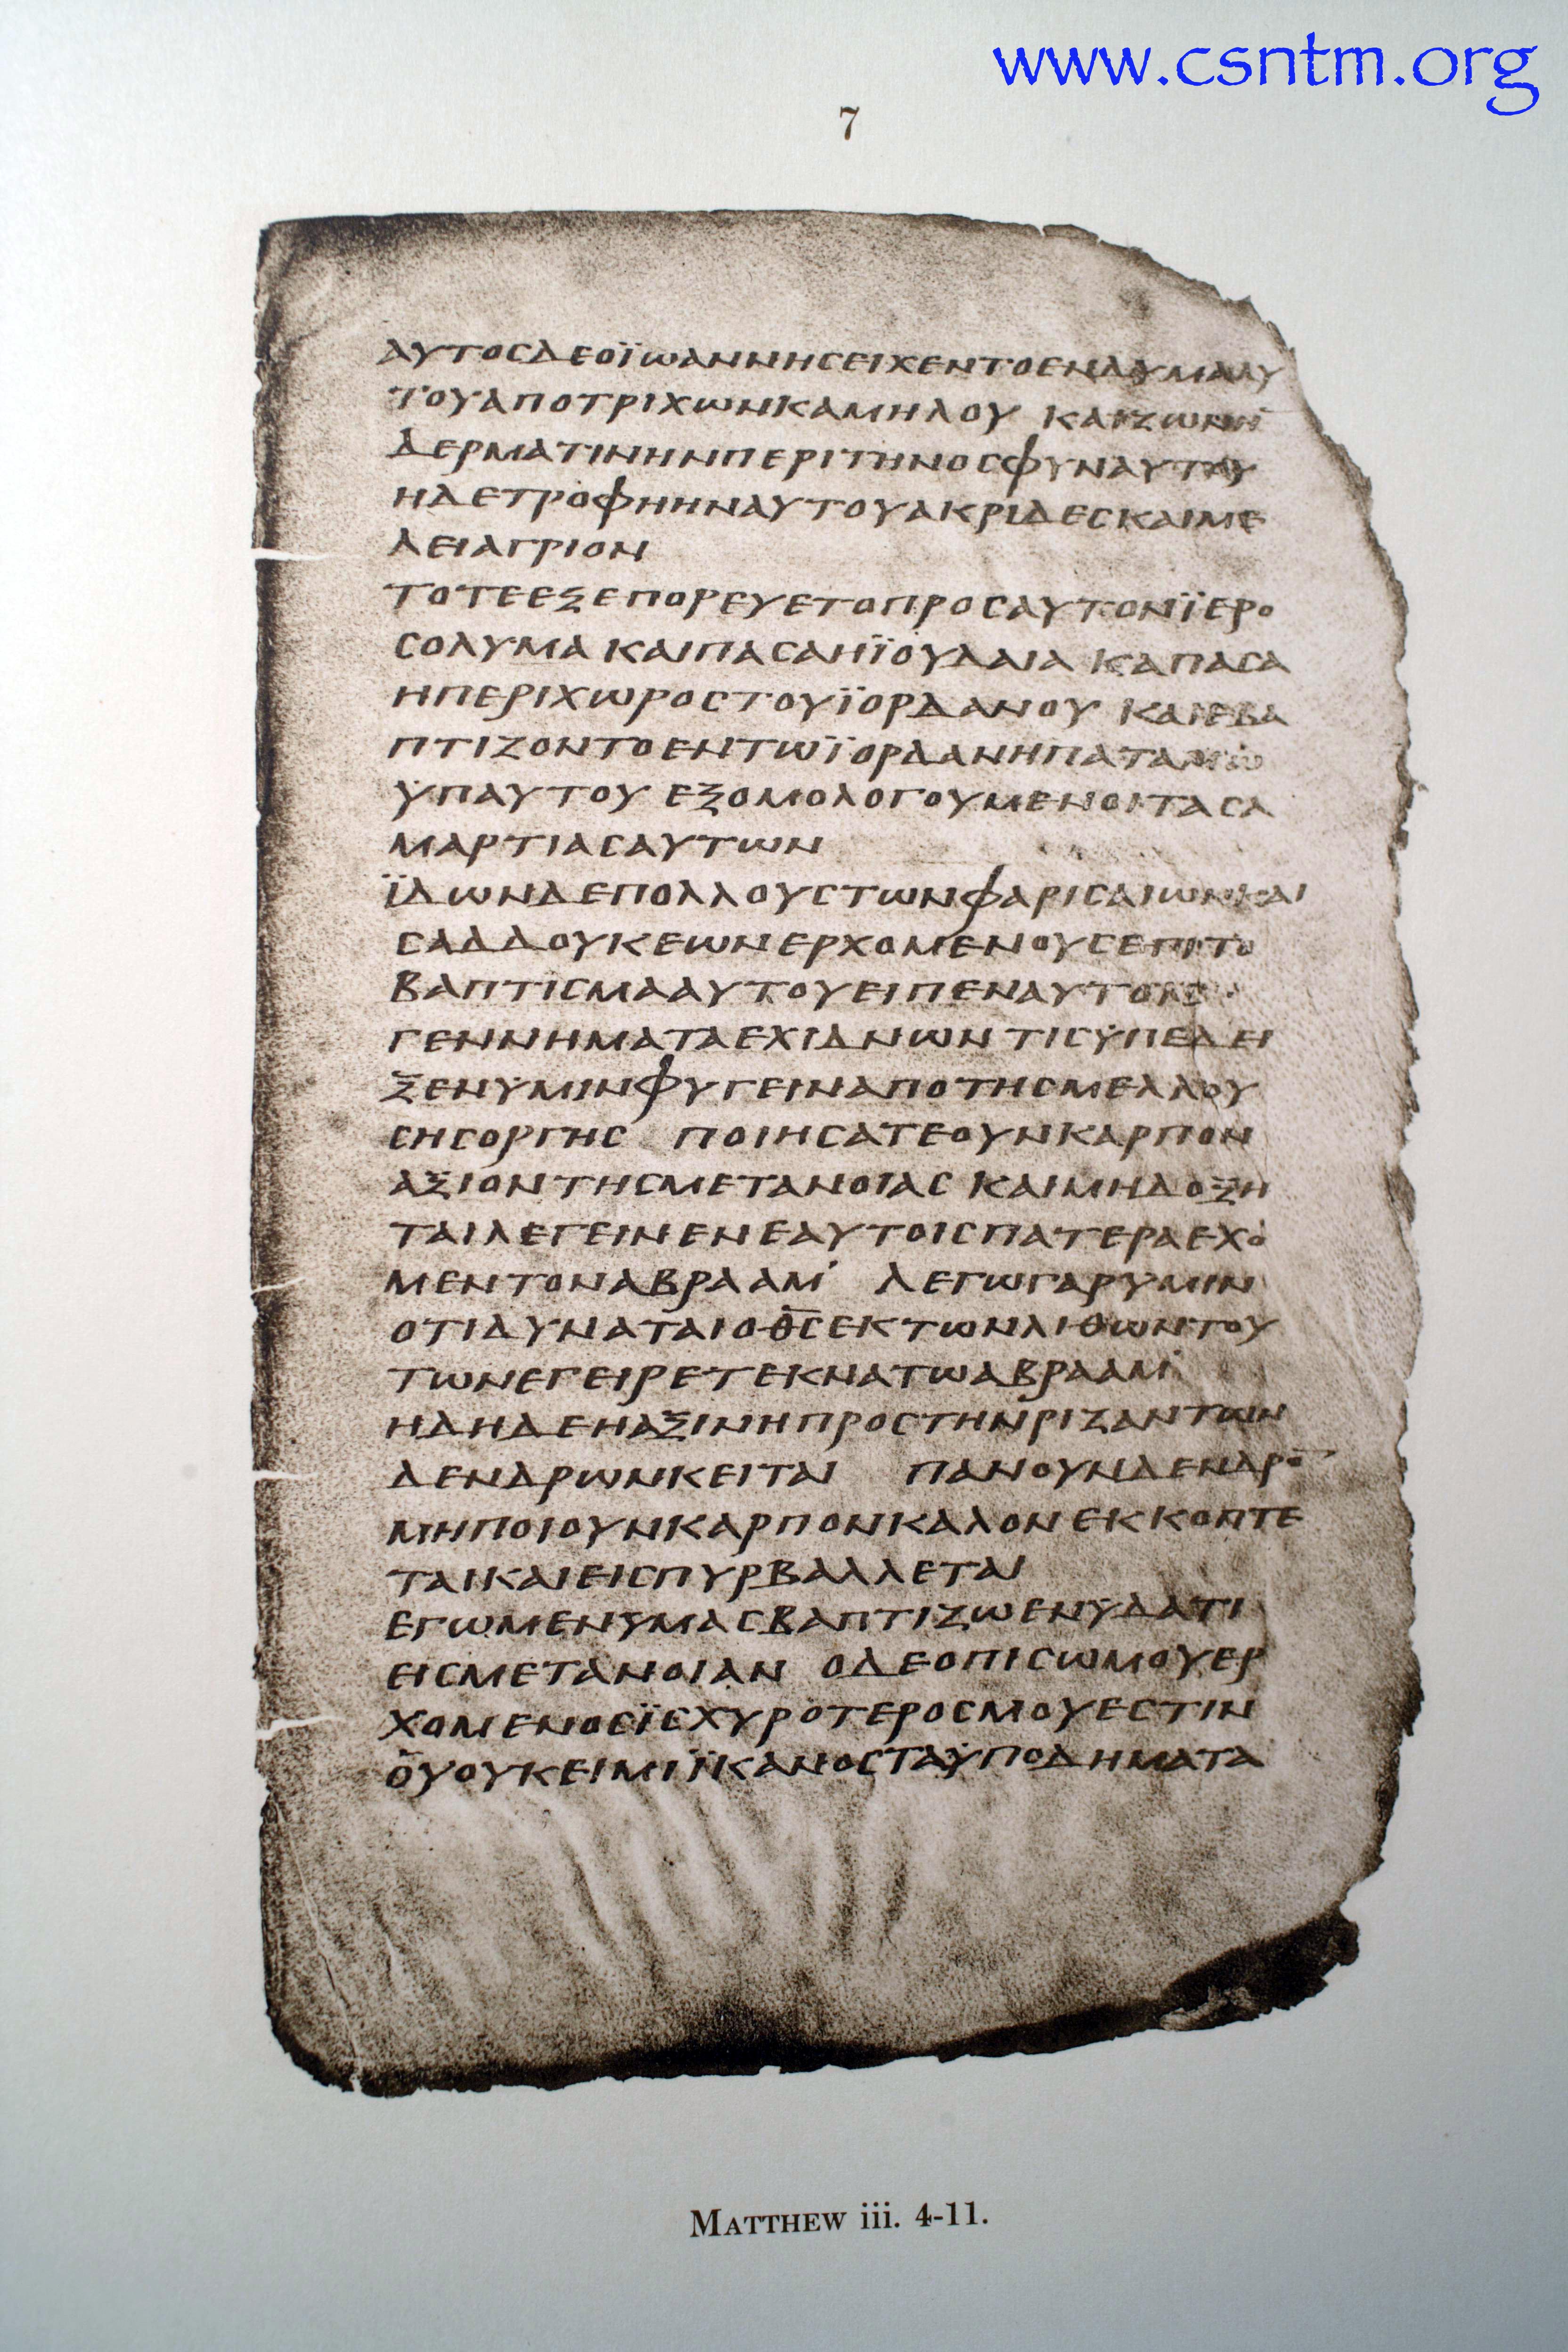 www.csntm.org
7
ΑΥΤΟCΔΕΟΪΩΑΝΝΗCΕΙΧΕΝΤΟΕΝΔΥΜΑΑΥ
ΤΟΥΑΠΟΤΡΙΧΩΝΚΑΜΗΛΟΥ ΚΑΙΖΩΝΗ
ΔΕΡΜΑΤΙΝΗΝΠΕΡΙΤΗΝΟCΦΥΝΑΥΤΟΥ
ΗΔΕΤΡΟΦΗΗΝΑΥΤΟΥΑΚΡΙΔΕCΚΑΙΜΕ
ΛΕΙΑΓΡΙΟΝ
ΤΟΤΕΕΞΕΠΟΡΕΥΕΤΟΠΡΟCΑΥΤΟΝΪΕΡΟ
CΟΛΥΜΑ ΚΑΙΠΑCΑΗΪΟΥΔΑΙΑ ΚΑΠΑCΑ
ΗΠΕΡΙΧΩΡΟCΤΟΥΪΟΡΔΑΝΟΥ ΚΑΙΕΒΑ
ΠΤΙΖΟΝΤΟΕΝΤΩΪΟΡΔΑΝΗΠΑΤΑΜΩ
ΫΠΑΥΤΟΥ ΕΞΟΜΟΛΟΓΟΥΜΕΝΟΙΤΑCΑ
ΜΑΡΤΙΑCΑΥΤΩΝ
ΪΔΩΝΔΕΠΟΛΛΟΥCΤΩΝΦΑΡΙCΑΙΩΝΚΑΙ
CΑΔΔΟΥΚΕΩΝΕΡΧΟΜΕΝΟΥCΕΠΙΤΟ
ΒΑΠΤΙCΜΑΑΥΤΟΥΕΙΠΕΝΑΥΤΟΙC
ΓΕΝΝΗΜΑΤΑΕΧΙΔΝΩΝ ΤΙCΫΠΕΔΕΙ
ΞΕΝΥΜΙΝΦΥΓΕΙΝΑΠΟΤΗCΜΕΛΛΟΥ
CΗCΟΡΓΗC ΠΟΙΗCΑΤΕΟΥΝΚΑΡΠΟΝ
ΑΞΙΟΝΤΗCΜΕΤΑΝΟΙΑC ΚΑΙΜΗΔΟΞΗ
ΤΑΙΛΕΓΕΙΝΕΝΕΑΥΤΟΙCΠΑΤΕΡΑΕΧΟ
ΜΕΝΤΟΝΑΒΡΑΑΜ' ΛΕΓΩΓΑΡΥΜΙΝ
ΟΤΙΔΥΝΑΤΑΙΟΘ̅C̅ΕΚΤΩΝΛΙΘΩΝΤΟΥ
ΤΩΝΕΓΕΙΡΕΤΕΚΝΑΤΩΑΒΡΑΑΜ'
ΗΔΗΔΕΗΑΞΙΝΗΠΡΟCΤΗΝΡΙΖΑΝΤΩΝ
ΔΕΝΔΡΩΝΚΕΙΤΑΙ ΠΑΝΟΥΝΔΕΝΔΡΟ̅
ΜΗΠΟΙΟΥΝΚΑΡΠΟΝΚΑΛΟΝΕΚΚΟΠΤΕ
ΤΑΙΚΑΙΕΙCΠΥΡΒΑΛΛΕΤΑΙ
ΕΓΩΜΕΝΫΜΑCΒΑΠΤΙΖΩΕΝΥΔΑΤΙ
ΕΙCΜΕΤΑΝΟΙΑΝ ΟΔΕΟΠΙCΩΜΟΥΕΡ
ΧΟΜΕΝΟCΪCΧΥΡΟΤΕΡΟCΜΟΥΕCΤΙΝ
ΟΥΟΥΚΕΙΜΙΪΚΑΝΟCΤΑΫΠΟΔΗΜΑΤΑ
MATTHEW iii. 4-11.